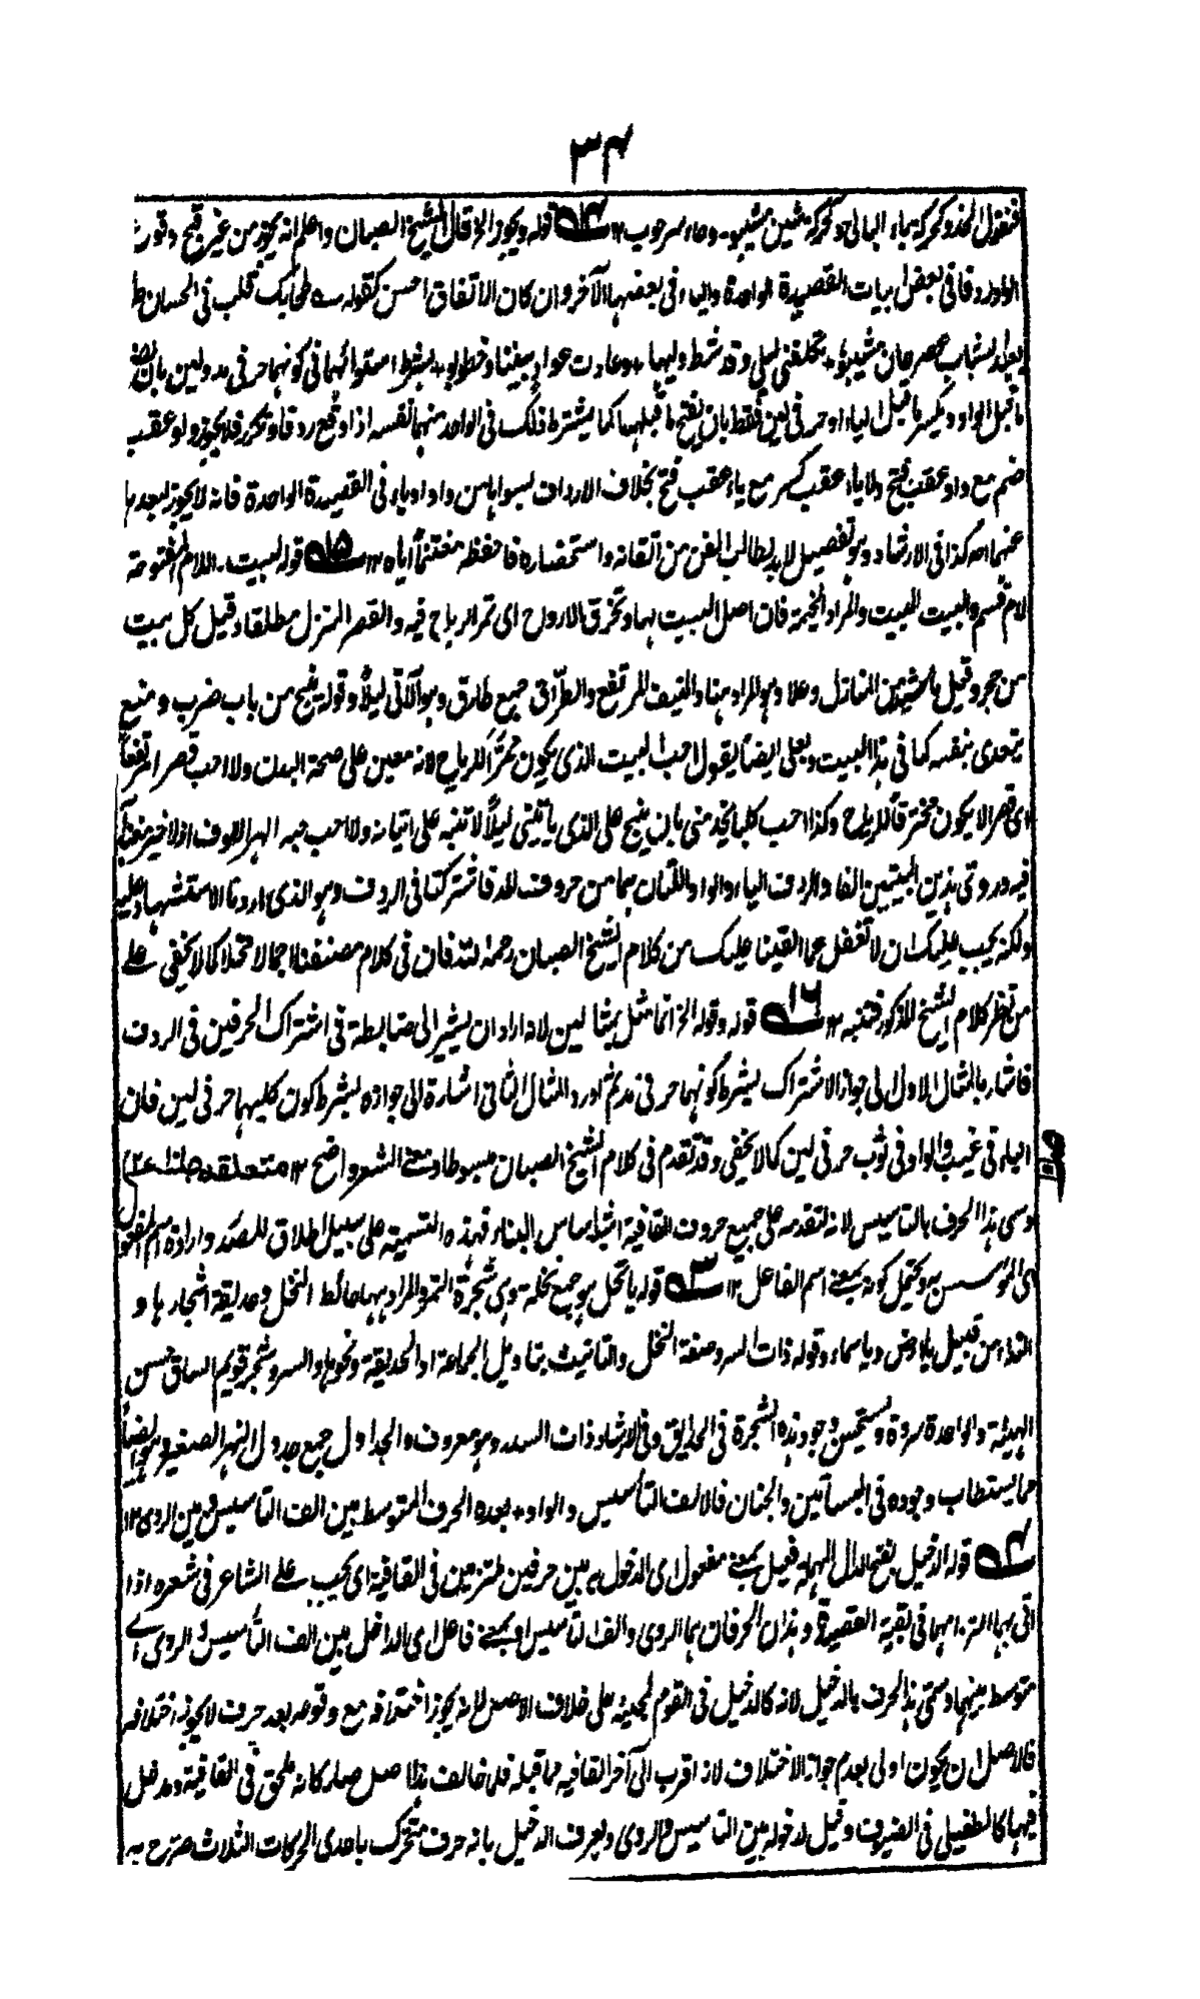 ٣٤
فنقول الحذو كحركة باء البالى و كحركة شين مشيبو وحاء سرحوب ١٢ قوله ويجوز الخ قال الشيخ الصبان واعلم انه يجوز من غير قبح وقوع
الواو ردفا فى بعض ابيات القصيدة الواحدة والياء فى بعضها الآخر وان كان الاتفاق احسن كقوله طحا بك قلب فى الحسان ط
بعيد الشباب عصر حان مشيبو تكلفنى ليلى وقد شط وليها وعادت عواد بيننا وخطوبو بشرط استوائهما فى كونهما حرفى مد ولين بان يضم
ما قبل الواو ويكسر ما قبل الياء او حرفى لين فقط بان يفتح ما قبلهما كما يشترط ذلك فى الواحد منهما نفسه اذا وقع ردفا وتكرر فلا يجوز واو عقب
ضم مع واو عقب فتح ولا ياء عقب كسر مع ياء عقب فتح بخلاف الارداف بسواهما من واو او ياء فى القصيدة الواحدة فانه لا يجوز لبعدها
عنهما اهـ كذا فى الارشاد وهو تفصيل لابد لطالب الفن من اتقانه واستحضاره فاحفظه مغتنما اياه ١٢ ١٥ قوله لبيت اللام المفتوحة
لام قسم والبيت البيت والمراد الخيمة فان اصل البيت لها وتخرق الارواح اى تمر الرياح فيه والقصر المنزل مطلقا وقيل كل بيت
من حجر وقيل ما شيد من المنازل وعلا وهو المراد هنا والمنيف المرتفع والطراق جمع طارق وهو الآتى ليلا وقوله ينبح من باب ضرب ومنع
يتعدى بنفسه كما فى هذا البيت وبعلى ايضا يقول احب البيت الذى يكون ممرا للرياح لانه معين على صحة البدن ولا احب قصرا مرتفعا
اى قصرا لا يكون مخترقا للرياح وكذا احب كلبا يخدمنى بان ينبح على الذى ياتينى ليلا لاتنبه على اتيانه ولا احب حبه الهر الالوف اذ لا خير معتد
فيه وروى هذين البيتين الفاء والردف الياء والواو اللتان هما من حروف المد فاشتركتا فى الردف وهو الذى اردنا الاستشهاد عليه
ولكنه يجب عليك ان لا تغفل عما القينا عليك من كلام الشيخ الصبان رحمه الله فان فى كلام مصنفنا اجمالا مخلا كما لا يخفى على
من نظر كلام الشيخ المذكور فتنبه ١٢ ١٦ قوله وقوله الخ انما مثل بمثالين لانه اراد ان يشير الى ضابطة فى اشتراك الحرفين فى الردف
فاشار بالمثال الاول الى جواز الاشتراك بشرط كونهما حرفى مد ثم اورد المثال الثانى اشارة الى جوازه بشرط كون كليهما حرفى لين فان
الياء فى غيب والواو فى ثوب حرفى لين كما لا يخفى وقد تقدم فى كلام الشيخ الصبان مبسوطا ومعنى الشعر واضح ١٢ متعلقه
وسمى هذا الحرف بالتاسيس لانه لتقدمه على جميع حروف القافية اشبه اساس البناء فهذه التسمية على سبيل اطلاق المصدر وارادة اسم المفعول
اى المؤسس به ويحتمل كونه بمعنى اسم الفاعل ١٢ ٣ قوله يا نخل هو جمع نخلة وهى شجرة التمر والمراد بها حائط النخل وحديقة اشجارها و
النداء من قبيل يا ارض ويا سماء وقوله ذات السرو صفة النخل والتانيث بتاويل الجماعة او الحديقة ونحوها والسرو شجر قويم الساق حسن
الهيئة والواحدة سروة ويستحسن وجود هذه الشجرة فى الحدائق وفى الارشاد ذات السدر وهو معروف والجداول جمع جدول النهر الصغير وهو ايضا
مما يستطاب وجوده فى البساتين والجنان فالالف التأسيس والواو بعده الحرف المتوسط بين الف التأسيس وبين الروى ١٢
٤ قوله الدخيل بفتح الدال المهملة فعيل بمعنى مفعول اى المدخول بين حرفين ملتزمين فى القافية اى يجب على الشاعر فى شعره اذا
اتى بهما التزامهما فى بقية القصيدة وهذان الحرفان هما الروى والف التاسيس او بمعنى فاعل اى الداخل بين الف التأسيس والروى اى
متوسط بينهما وسمى هذا الحرف بالدخيل لانه كالدخيل فى القوم لمجيئه على خلاف الاصل لانه يجوز اختلافه مع وقوعه بعد حرف لا يجوز اختلافه
فالاصل ان يكون اولى بعدم جواز الاختلاف لانه اقرب الى آخر القافية مما قبله فلما خالف هذا الاصل صار كانه ملحق فى القافية ومدخل
فيها كالطفيلى فى الضيوف وقيل لدخوله بين التاسيس والروى ويعرف الدخيل بانه حرف متحرك باحدى الحركات الثلاث صرح به